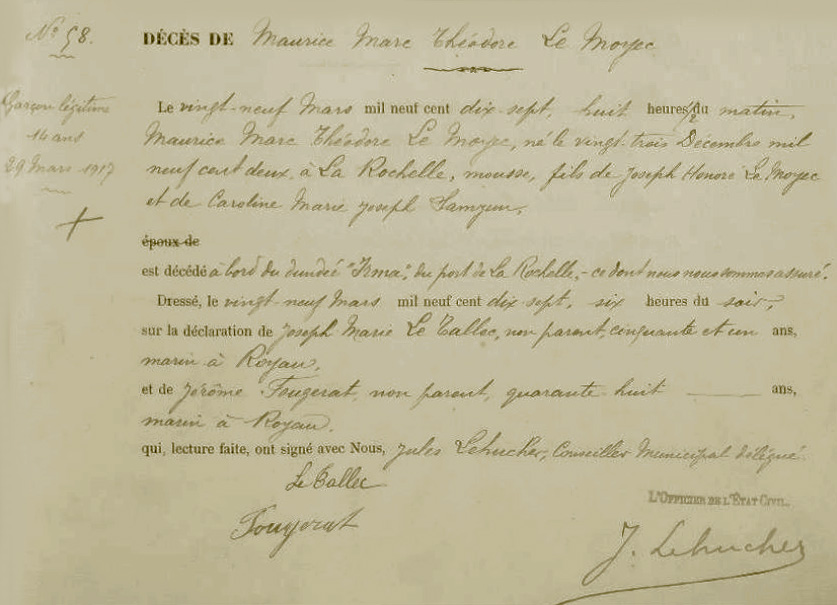 N° 58.
DÉCÈS DE Maurice Marc Théodore Le Moyec
Garçon légitime
14 ans
29 Mars 1917
Le vingt-neuf Mars mil neuf cent dix-sept, huit heures 1/2 du matin,
Maurice Marc Théodore Le Moyec, né le vingt-trois Décembre mil
neuf cent deux, à La Rochelle, mousse, fils de Joseph Honoré Le Moyec
et de Caroline Marie Joseph
époux de
est décédé à bord du dundée "Irma", du port de La Rochelle, - ce dont nous nous sommes assuré.
Dressé, le vingt-neuf Mars mil neuf cent dix-sept, six heures du soir,
sur la déclaration de Joseph Marie Le Tallec, non parent, cinquante et un ans,
marin à Royan,
et de Jérôme Fougerat, non parent, quarante-huit ans,
marin à Royan.
qui, lecture faite, ont signé avec Nous, Jules Lehucher, Conseiller Municipal délégué.
Le Tallec
Fougerat
L'OFFICIER DE L'ÉTAT CIVIL,
J. Lehucher